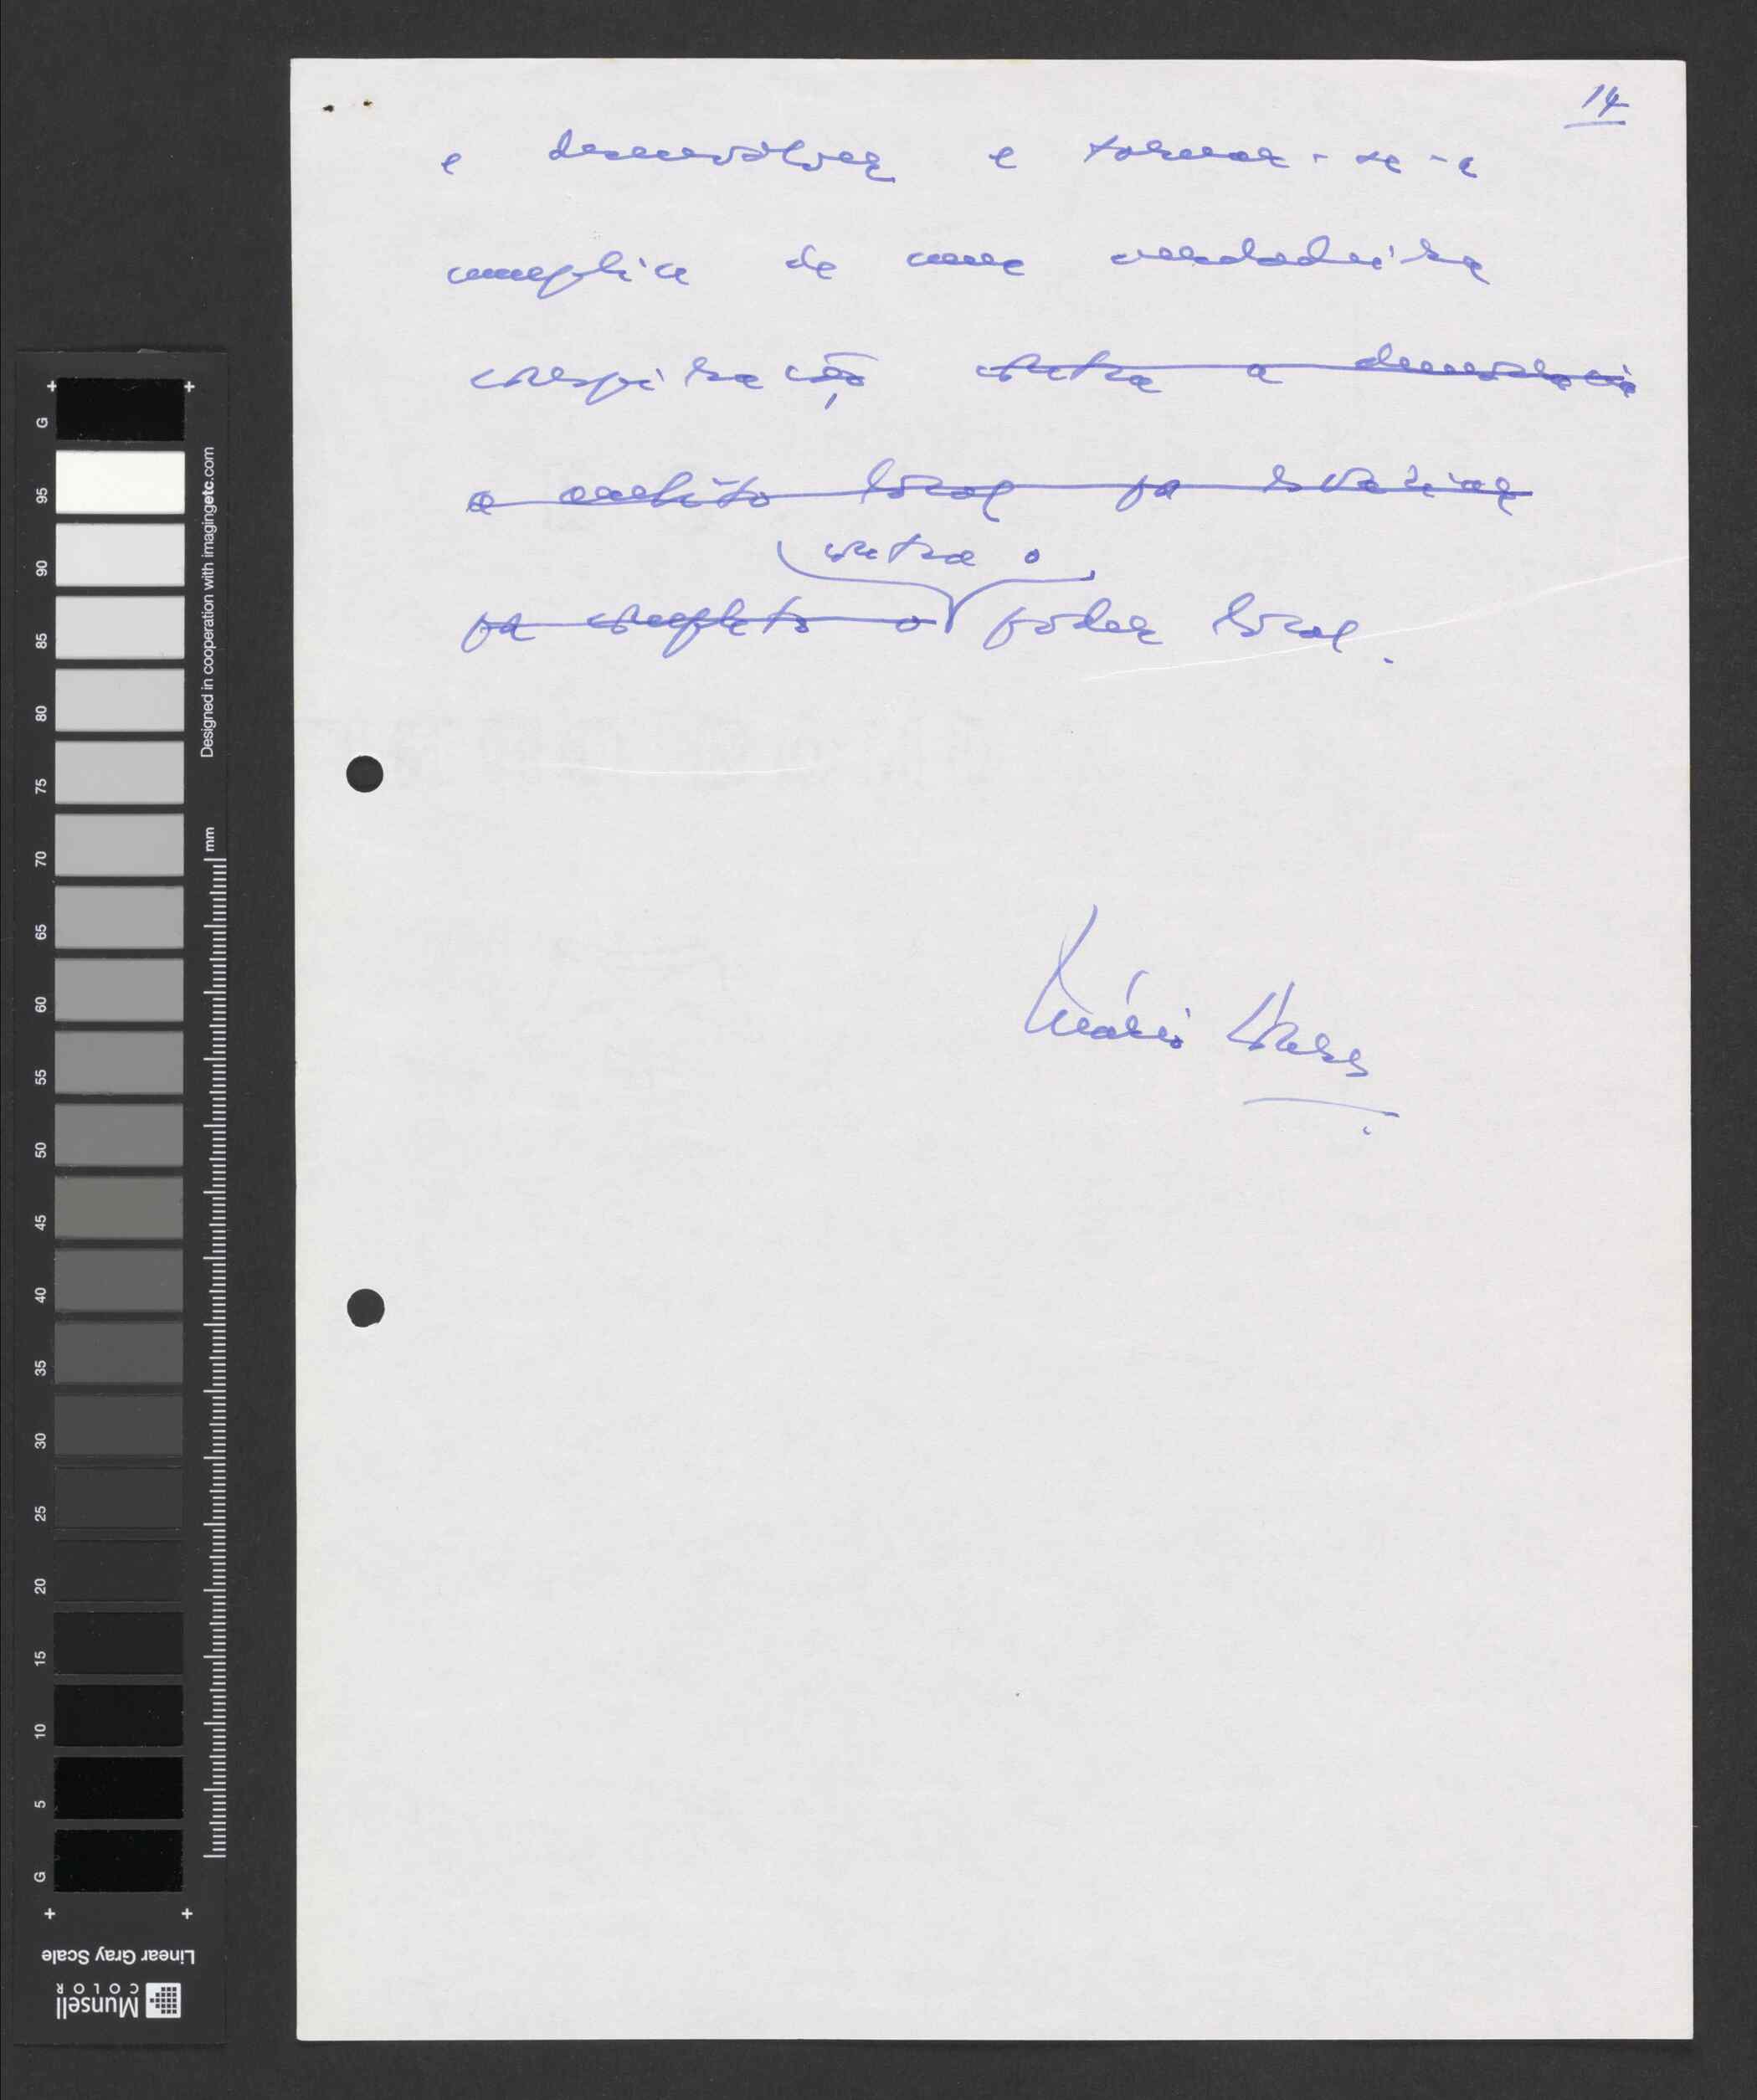 14
e desenvolver e tornar-se-a
cumplice de uma verdadeira
conspiração contra a democracia
a âmbito local
contra o
poder local.
Mário Soares
Designed in cooperation with imagingetc.com
mm
G 95 90 85 80 75 70 65 60 55 50 45 40 35 30 25 20 15 10 5 G
Linear Gray Scale
Munsell
COLOR